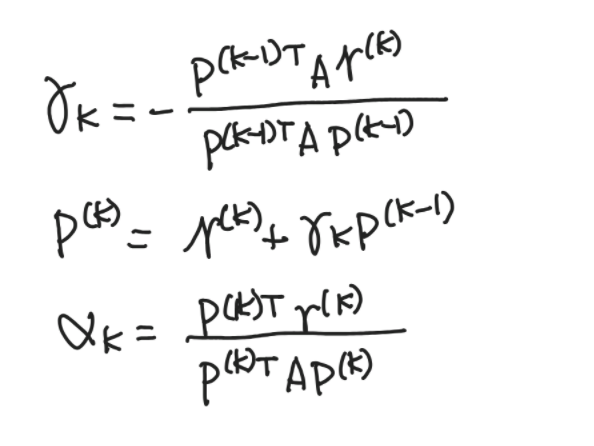 γ_k = - \frac{p^{(k-1)T} A r^{(k)}}{p^{(k-1)T} A p^{(k-1)}}
p^{(k)} = r^{(k)} + γ_k p^{(k-1)}
α_k = \frac{p^{(k)T} r^{(k)}}{p^{(k)T} A p^{(k)}}